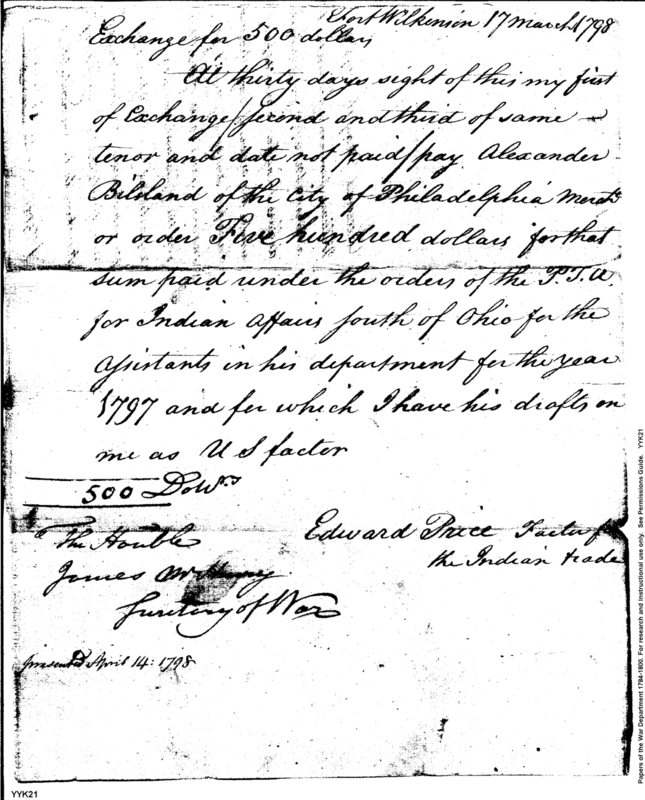 Fort Wilkinson 17 March 1798
Exchange for 500 dollars
At thirty days sight of this my first
of Exchange / second and third of same
tenor and date not paid / pay Alexander
Bilsland of the City of Philadelphia Mercht
or order Five hundred dollars for that
sum paid under the orders of the P. T. A.
for Indian Affairs south of Ohio for the
Assistants in his department for the year
1797 and for which I have his drafts on
me as U S factor
500 Dollrs
Edward Price Factor for
the Indian trade
The Honble
James McHenry
Secretary of War
presented April 14: 1798
YYK21
Papers of the War Department 1784-1800. For research and instructional use only. See Permissions Guide. YYK21